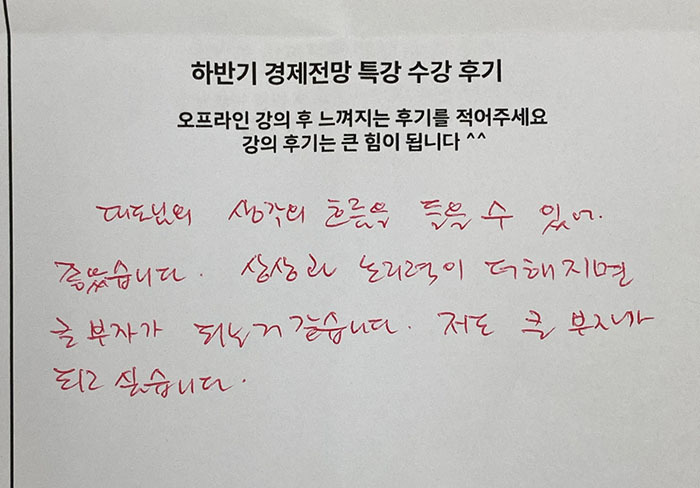 하반기 경제전망 특강 수강 후기
오프라인 강의 후 느껴지는 후기를 적어주세요
강의 후기는 큰 힘이 됩니다 ^^
대표님의 생각의 흐름을 들을 수 있어.
좋았습니다. 상상과 논리력이 더해지면
큰 부자가 되는거 같습니다. 저도 큰 부자가
되고 싶습니다.